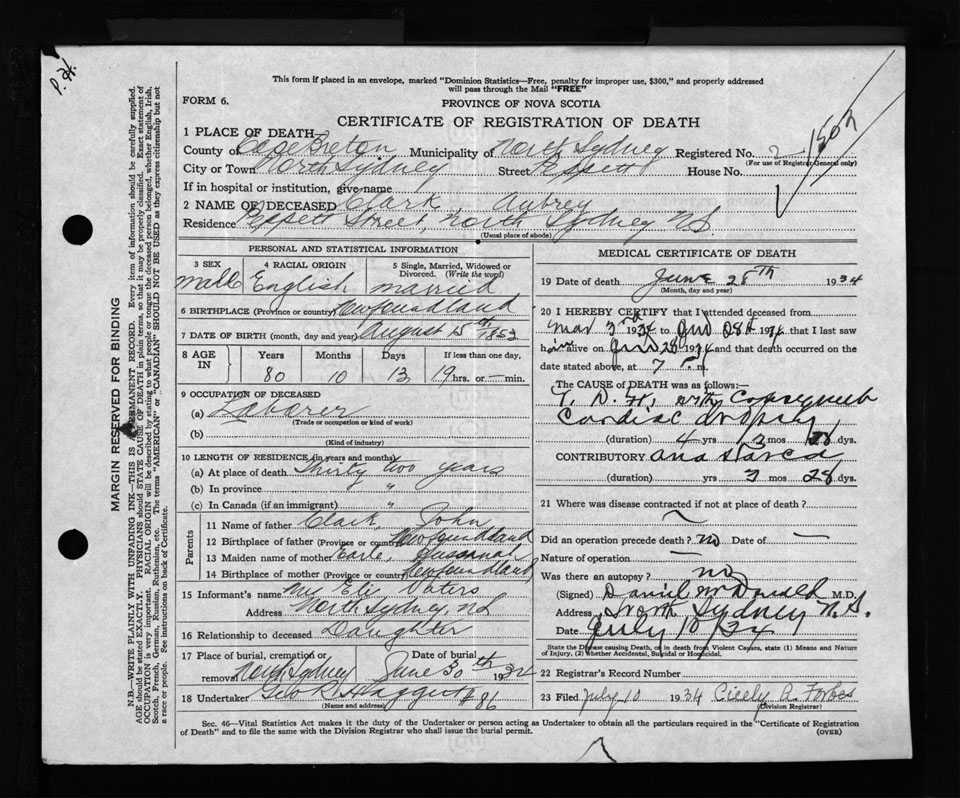 P. H.
This form if placed in an envelope, marked "Dominion Statistics—Free, penalty for improper use, $300," and properly addressed
will pass through the Mail "FREE"
FORM 6.
PROVINCE OF NOVA SCOTIA
CERTIFICATE OF REGISTRATION OF DEATH
1502
1 PLACE OF DEATH—
County of Cape Breton Municipality of North Sydney Registered No. 2
(For use of Registrar General only)
City or Town North Sydney Street Peppett House No.
If in hospital or institution, give name
2 NAME OF DECEASED Clark, Aubrey
Residence Peppett Street, North Sydney N.S.
(Usual place of abode)
PERSONAL AND STATISTICAL INFORMATION
3 SEX 4 RACIAL ORIGIN 5 Single, Married, Widowed or
Divorced. (Write the word)
Male English Married
6 BIRTHPLACE (Province or country) Newfoundland
7 DATE OF BIRTH (month, day and year) August 15th 1853
8 AGE IN Years Months Days If less than one day,
80 10 13 19 hrs. or — min.
9 OCCUPATION OF DECEASED
(a) Laborer
(Trade or occupation or kind of work)
(b)
(Kind of industry)
10 LENGTH OF RESIDENCE (in years and months)
(a) At place of death Thirty two years
(b) In province "
(c) In Canada (if an immigrant) "
Parents
11 Name of father Clark, John
12 Birthplace of father (Province or country) Newfoundland
13 Maiden name of mother Earle, Susannah
14 Birthplace of mother (Province or country) Newfoundland
15 Informant's name Mrs Eli Vaters
Address North Sydney, N.S.
16 Relationship to deceased Daughter
17 Place of burial, cremation or removal North Sydney Date of burial June 30th 1934
18 Undertaker Geo R. Haggett #86
(Name and address)
MEDICAL CERTIFICATE OF DEATH
19 Date of death June 28th 1934
(Month, day and year)
20 I HEREBY CERTIFY that I attended deceased from
Mar 3rd 1934 to Jun 28th 1934 that I last saw
him alive on Jun 28 1934 and that death occurred on the
date stated above, at 7 P. m.
The CAUSE of DEATH was as follows:—
with
Cardiac dropsy
(duration) 4 yrs 3 mos 28 dys.
CONTRIBUTORY anasarca
(duration) yrs 3 mos 28 dys.
21 Where was disease contracted if not at place of death?
Did an operation precede death? no Date of —
Nature of operation —
Was there an autopsy? no
(Signed) Daniel McDonald M.D.
Address North Sydney N.S.
Date July 10/34
State the Disease causing Death, or in death from Violent Causes, state (1) Means and Nature
of Injury, (2) whether Accidental, Suicidal or Homicidal.
22 Registrar's Record Number
23 Filed July 10 1934 Cicely A. Forbes
(Division Registrar)
Sec. 46—Vital Statistics Act makes it the duty of the Undertaker or person acting as Undertaker to obtain all the particulars required in the "Certificate of Registration
of Death" and to file the same with the Division Registrar who shall issue the burial permit.
(OVER)
MARGIN RESERVED FOR BINDING
N.B.—WRITE PLAINLY WITH UNFADING INK—THIS IS A PERMANENT RECORD. Every item of information should be carefully supplied.
AGE should be stated EXACTLY. PHYSICIANS should STATE CAUSE OF DEATH in plain terms, so that it may be properly classified. Exact statement of
OCCUPATION is very important. RACIAL ORIGIN will be described by stating to what people or tongue the deceased person belonged, whether English, Irish,
Scotch, French, German, Russian, Ruthenian, etc. The terms "AMERICAN" or "CANADIAN" SHOULD NOT BE USED as they express citizenship but not
a race or people. See instructions on back of Certificate.